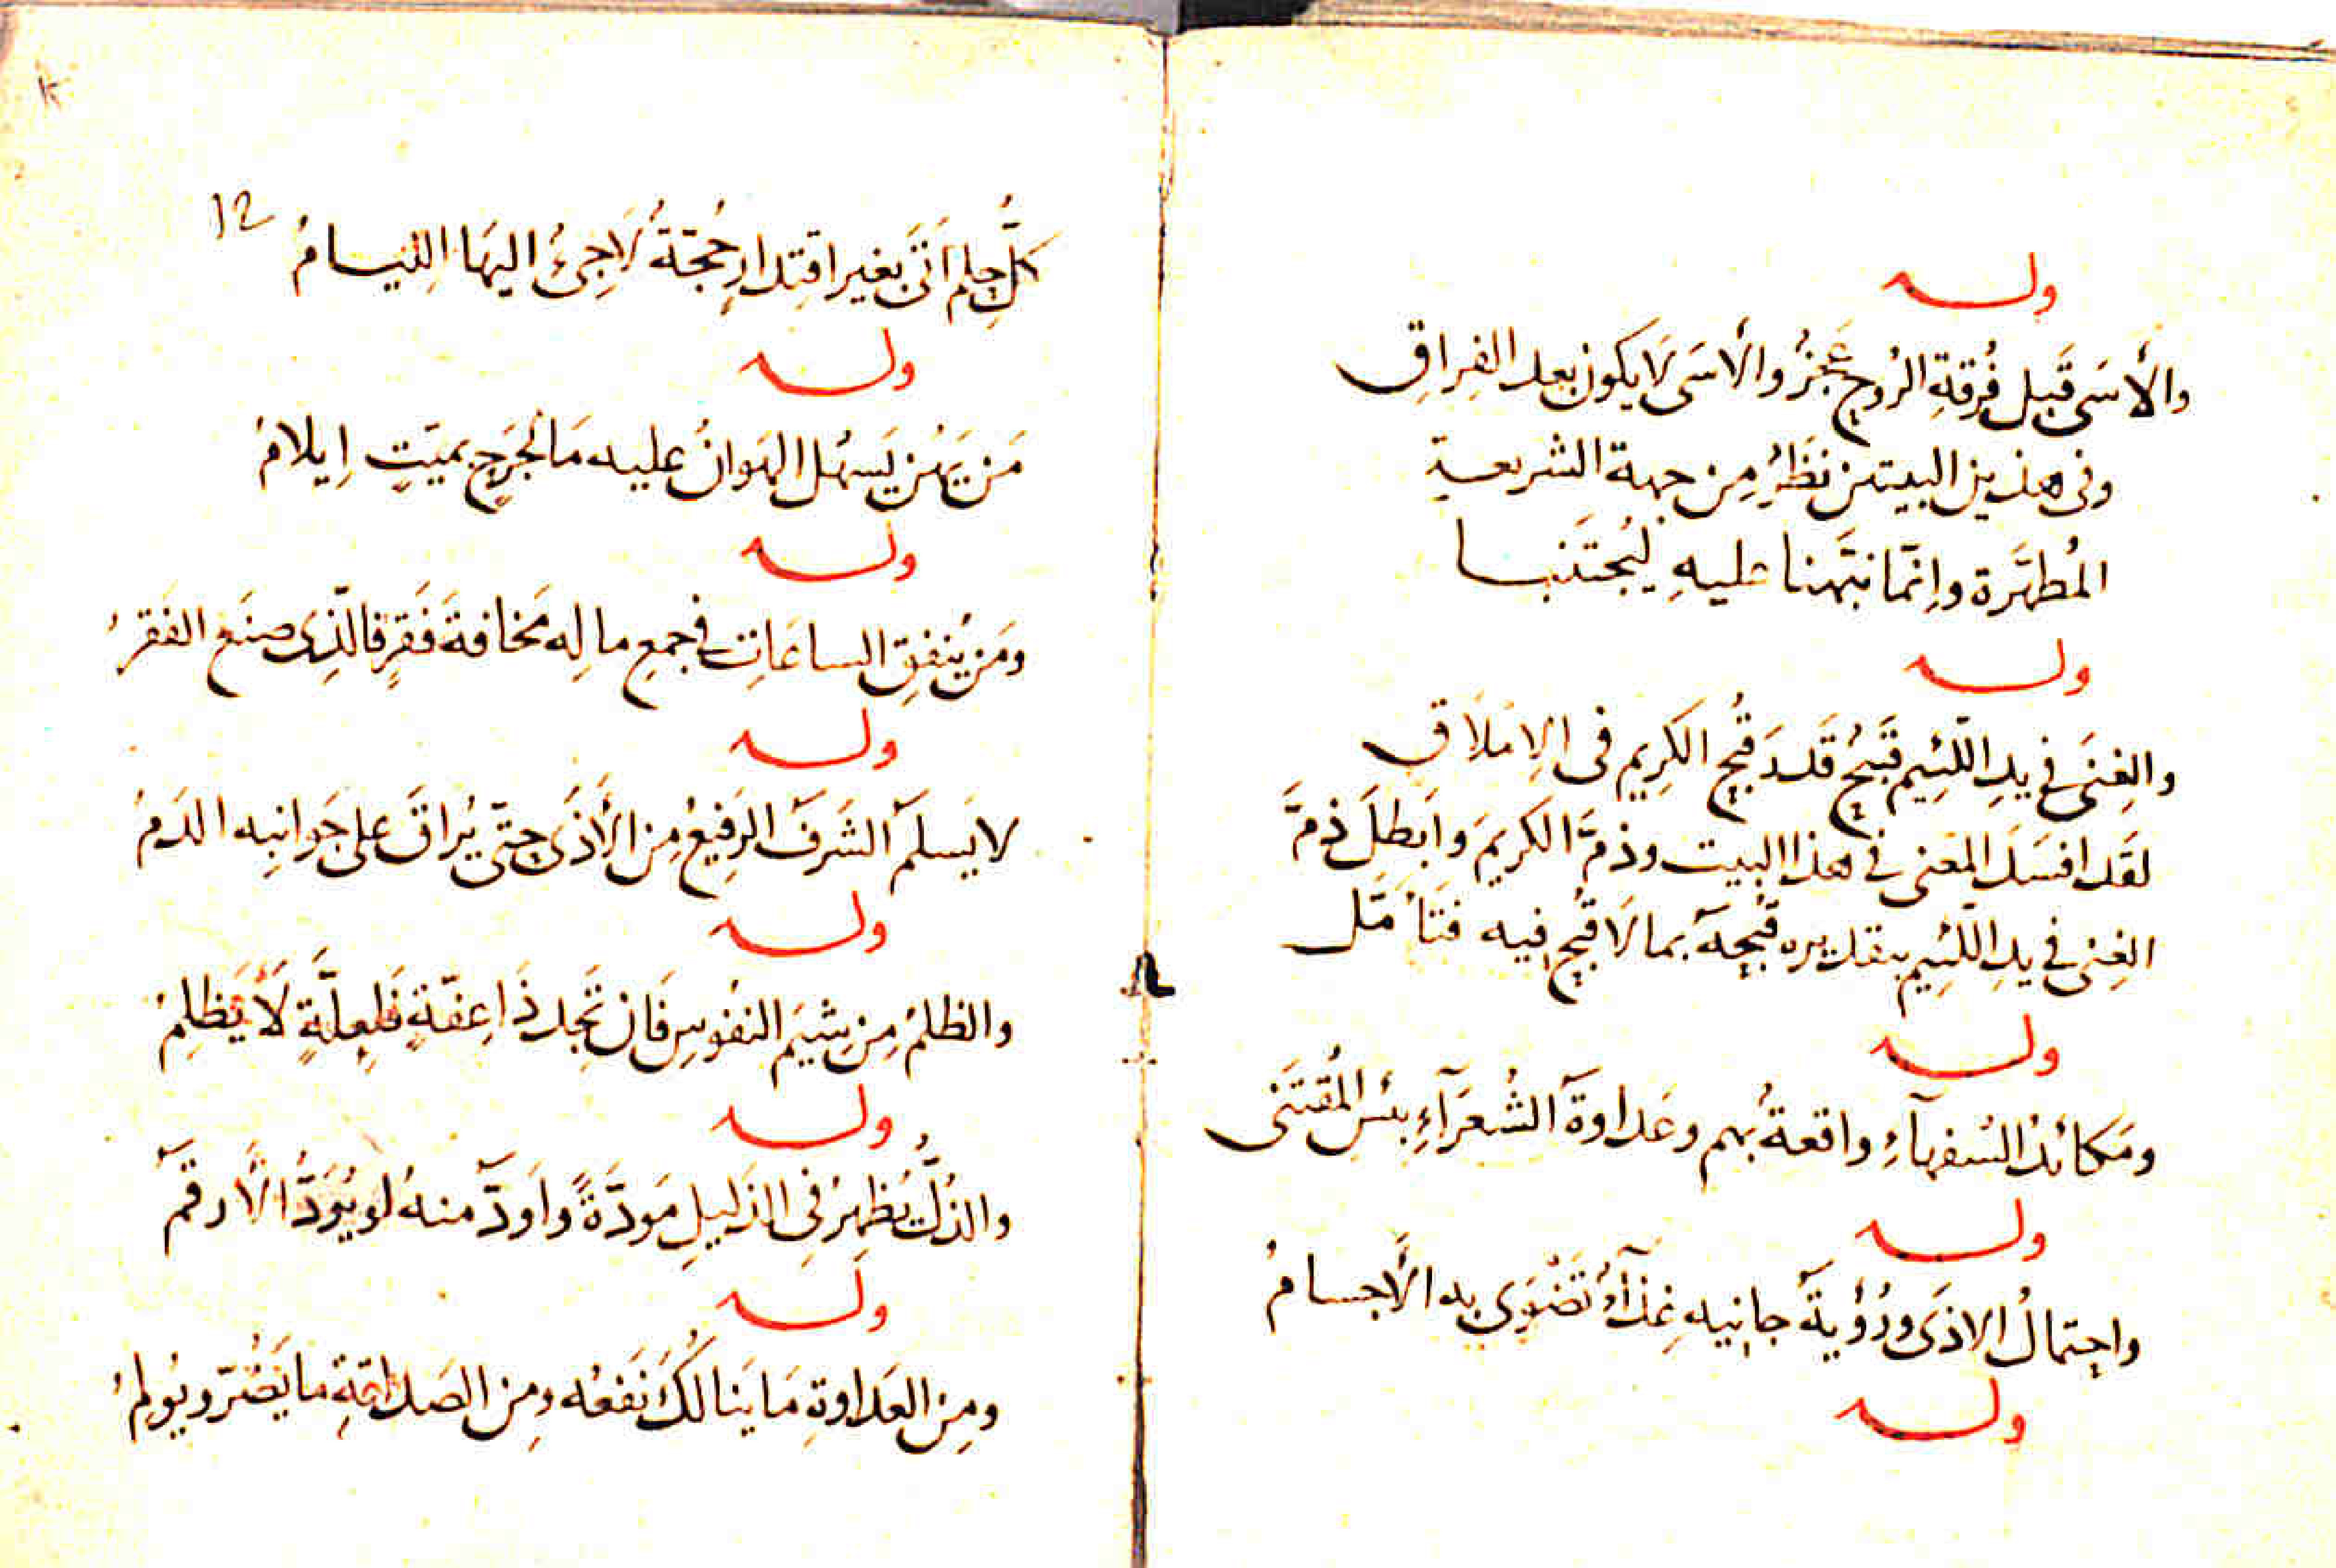 وله
والأسَى قَبل فُرقةِ الرُوحِ عَجزُ والأسَى لَا يكون بعد الفِراقِ
وفى هذين البيتين نظَرُ مِن جهة الشريعة
المُطهَّرة وإنّما نبَّهنا عليهِ ليُجتَنبا
وله
والغِنَى فى يدِ اللَّئِيم قَبيحُ قَدرَ قُبحِ الكَرِيم فى الإملَاقِ
لقَد افسَدَ المَعنى فى هذا البيت وذمَّ الكريمَ وابَطلَ ذمَّ
الغِنى فى يدِ اللَّئِيم بتقديره قُبحِهَ بما لَا قُبحِ فيه فتَأمَّل
وله
ومَكائدُ السُفهآءِ واقعةُ بهم وعَداوةُ الشُعَرَآءِ بئسَ المُقتَنَى
وله
واحتمالُ الاذَى ورُؤيةُ جانِيه غِذآءُ تَضْوَى به الأجسامُ
وله
12
كلُّ حِلمٍ اَتَى بغير اقتِدارٍ حُجّةُ لَاجِئُ اليهَا اللِّيَامُ
وله
مَن يَهُن يَسهُل الهَوانُ عليه مَا لجُرحٍ بميّتٍ إيلامُ
وله
ومَن يُنفِقِ الساعَاتِ فى جمعِ مالِه مَخافةَ فَقرٍ فالّذِى صنَع الفَقرُ
وله
لا يَسلَم الشَرفُ الرَفيعُ مِن الأَذَى حتّى يُراقَ على جَوانبِه الدَمُ
وله
والظلمُ مِن شِيَم النفُوسِ فَان تَجِد ذَا عِفّةٍ فَلِعِلَّةٍ لَا يَظلِمُ
وله
والذُلُّ يُظهِرُ فِى الذَليلِ مَودّةً واَودّ منهُ لو يُوَدُّ الأَرقَمُ
وله
ومِن العَداوةِ مَا يَنالُكَ نَفعُه ومِن الصَداقةِ ما يَضُرّ ويُولِمُ